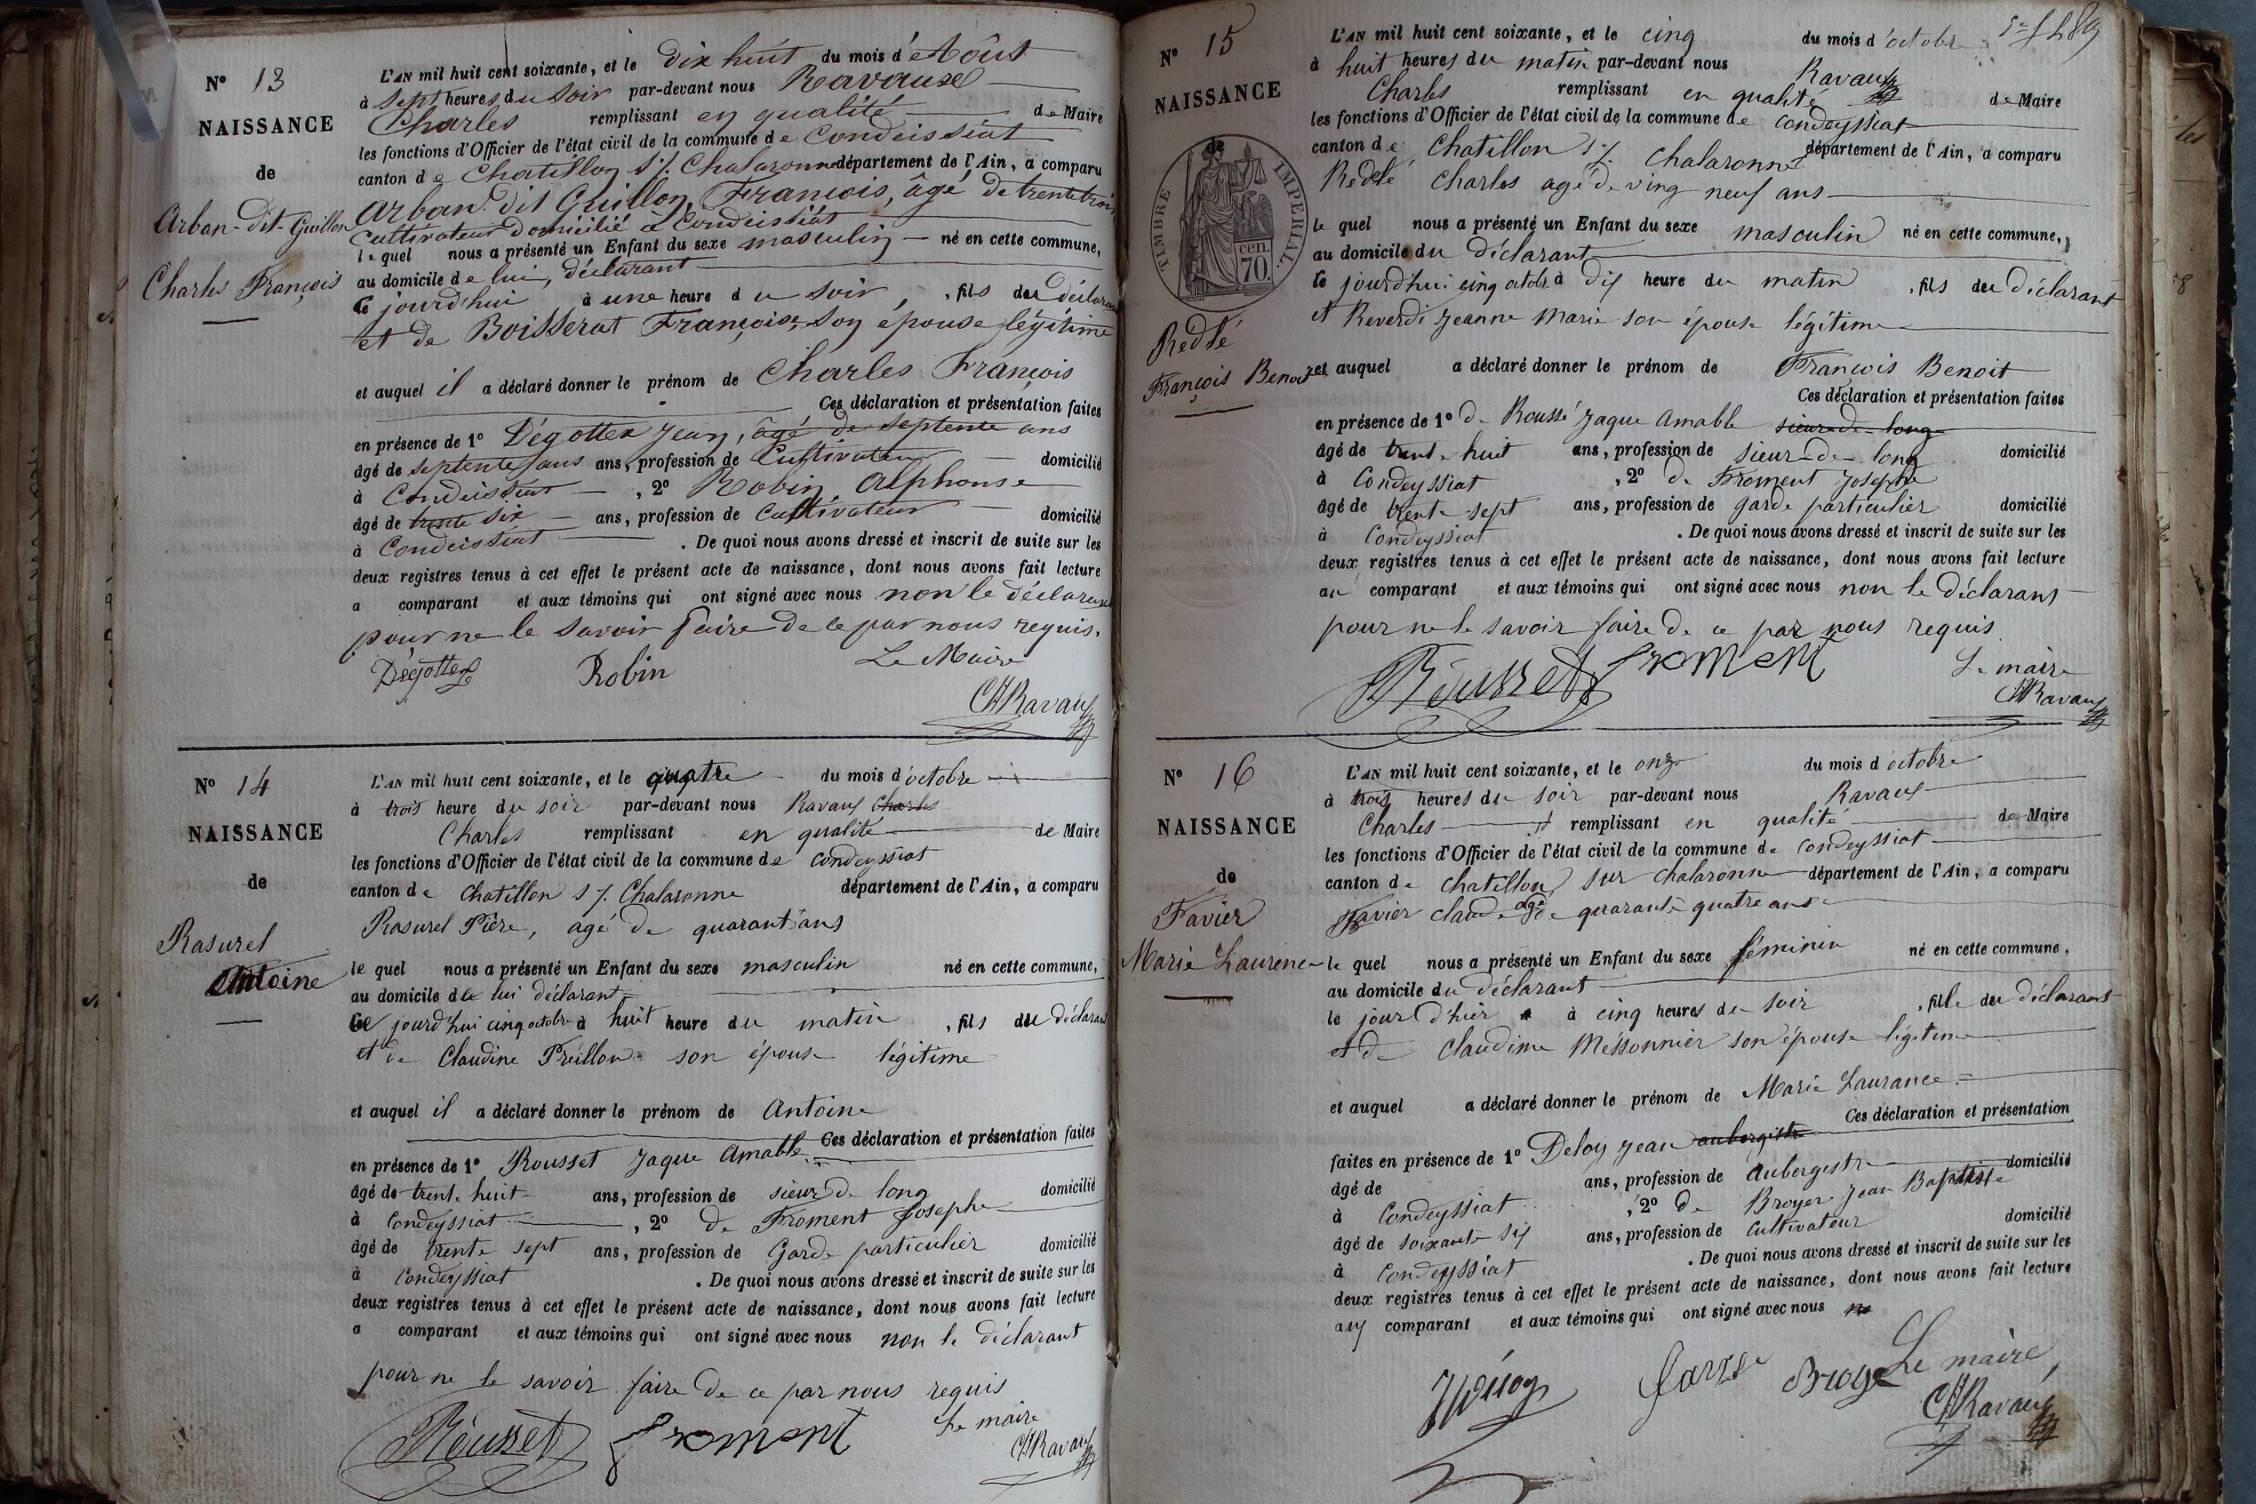 N° 13
NAISSANCE
de
Arban-dit-Guillon
Charles François
L'AN mil huit cent soixante, et le dix huit du mois d'Août
à sept heures du soir par-devant nous Ravaux
Charles remplissant en qualité de Maire
les fonctions d'Officier de l'état civil de la commune de Condeissiat
canton de Chatillon s/. Chalaronne département de l'Ain, a comparu
Arban dit Guillon, François, âgé de trente trois
cultivateur domicilié à Condeissiat
lequel nous a présenté un Enfant du sexe masculin né en cette commune,
au domicile de lui, déclarant
ce jourd'hui à une heure du soir, fils du déclarant
et de Boisserat Françoise, son épouse légitime
et auquel il a déclaré donner le prénom de Charles François
Ces déclaration et présentation faites
en présence de 1° Dégottex Jean, âgé de septente ans
âgé de septente ans ans, profession de Cultivateur domicilié
à Condeissiat, 2° Robin Alphonse
âgé de trente six ans, profession de cultivateur domicilié
à Condeissiat. De quoi nous avons dressé et inscrit de suite sur les
deux registres tenus à cet effet le présent acte de naissance, dont nous avons fait lecture
a comparant et aux témoins qui ont signé avec nous non le déclarant
pour ne le savoir faire de ce par nous requis.
Dégottex Robin Le Maire
CH Ravaux
N° 14
NAISSANCE
de
Rasurel
Antoine
L'AN mil huit cent soixante, et le quatre du mois d'octobre
à trois heure du soir par-devant nous Ravaux Charles
Charles remplissant en qualité de Maire
les fonctions d'Officier de l'état civil de la commune de Condeyssiat
canton de Chatillon s/. Chalaronne département de l'Ain, a comparu
Rasurel Pière, agé de quarant'ans
le quel nous a présenté un Enfant du sexe masculin né en cette commune,
au domicile de lui déclarant
Ce jourd'hui cinq octobre à huit heure du matin, fils du déclarant
et de Claudine Préillon son épouse légitime
et auquel il a déclaré donner le prénom de Antoine
Ces déclaration et présentation faites
en présence de 1° Rousset Jaque Amable
âgé de trente huit ans, profession de sieur de long domicilié
à Condeyssiat, 2° de Froment Josephe
âgé de trente sept ans, profession de Garde particulier domicilié
à Condeyssiat. De quoi nous avons dressé et inscrit de suite sur les
deux registres tenus à cet effet le présent acte de naissance, dont nous avons fait lecture
a comparant et aux témoins qui ont signé avec nous non le déclarant
pour ne le savoir faire de ce par nous requis
Rousset Froment Le maire
CH Ravaux
N° 15
NAISSANCE
de
TIMBRE IMPERIAL.
cen.
70.
Redlé
François Benoit
L'AN mil huit cent soixante, et le cinq du mois d'octobre
à huit heures du matin par-devant nous Ravaux
Charles remplissant en qualité de Maire
les fonctions d'Officier de l'état civil de la commune de Condeyssiat
canton de Chatillon s/. Chalaronne département de l'Ain, a comparu
Redlé Charles agé de ving neuf ans
le quel nous a présenté un Enfant du sexe masculin né en cette commune,
au domicile du déclarant
le jourd'hui cinq octobre à dix heure du matin, fils du déclarant
et Reverdi Jeanne Marie son épouse légitime
et auquel a déclaré donner le prénom de François Benoit
Ces déclaration et présentation faites
en présence de 1° de Roussé Jaque Amable sieur de long
âgé de trente huit ans, profession de sieur de long domicilié
à Condeyssiat, 2° de Froment Josephe
âgé de trente sept ans, profession de garde particulier domicilié
à Condeyssiat. De quoi nous avons dressé et inscrit de suite sur les
deux registres tenus à cet effet le présent acte de naissance, dont nous avons fait lecture
au comparant et aux témoins qui ont signé avec nous non le déclarant
pour ne le savoir faire de ce par nous requis
Rousset Froment Le maire
CH Ravaux
N° 16
NAISSANCE
de
Favier
Marie Laurence
L'AN mil huit cent soixante, et le onze du mois d octobre
à trois heures du soir par-devant nous Ravaux
Charles remplissant en qualité de Maire
les fonctions d'Officier de l'état civil de la commune de Condeyssiat
canton de chatillon sur chalaronne département de l'Ain, a comparu
Favier claude agé de quarante quatre ans
le quel nous a présenté un Enfant du sexe féminin né en cette commune,
au domicile du déclarant
le jour d'hier à cinq heures du soir, fille du déclarant
et de Claudine Méssonnier son épouse légitime
et auquel a déclaré donner le prénom de Marie Laurance
Ces déclaration et présentation
faites en présence de 1° Deloy Jean aubergiste
âgé de ans, profession de aubergiste domicilié
à Condeyssiat, 2° de Broyer Jean Baptiste
âgé de soixante six ans, profession de cultivateur domicilié
à Condeyssiat. De quoi nous avons dressé et inscrit de suite sur les
deux registres tenus à cet effet le présent acte de naissance, dont nous avons fait lecture
aux comparant et aux témoins qui ont signé avec nous
Broye Le maire,
CH Ravaux